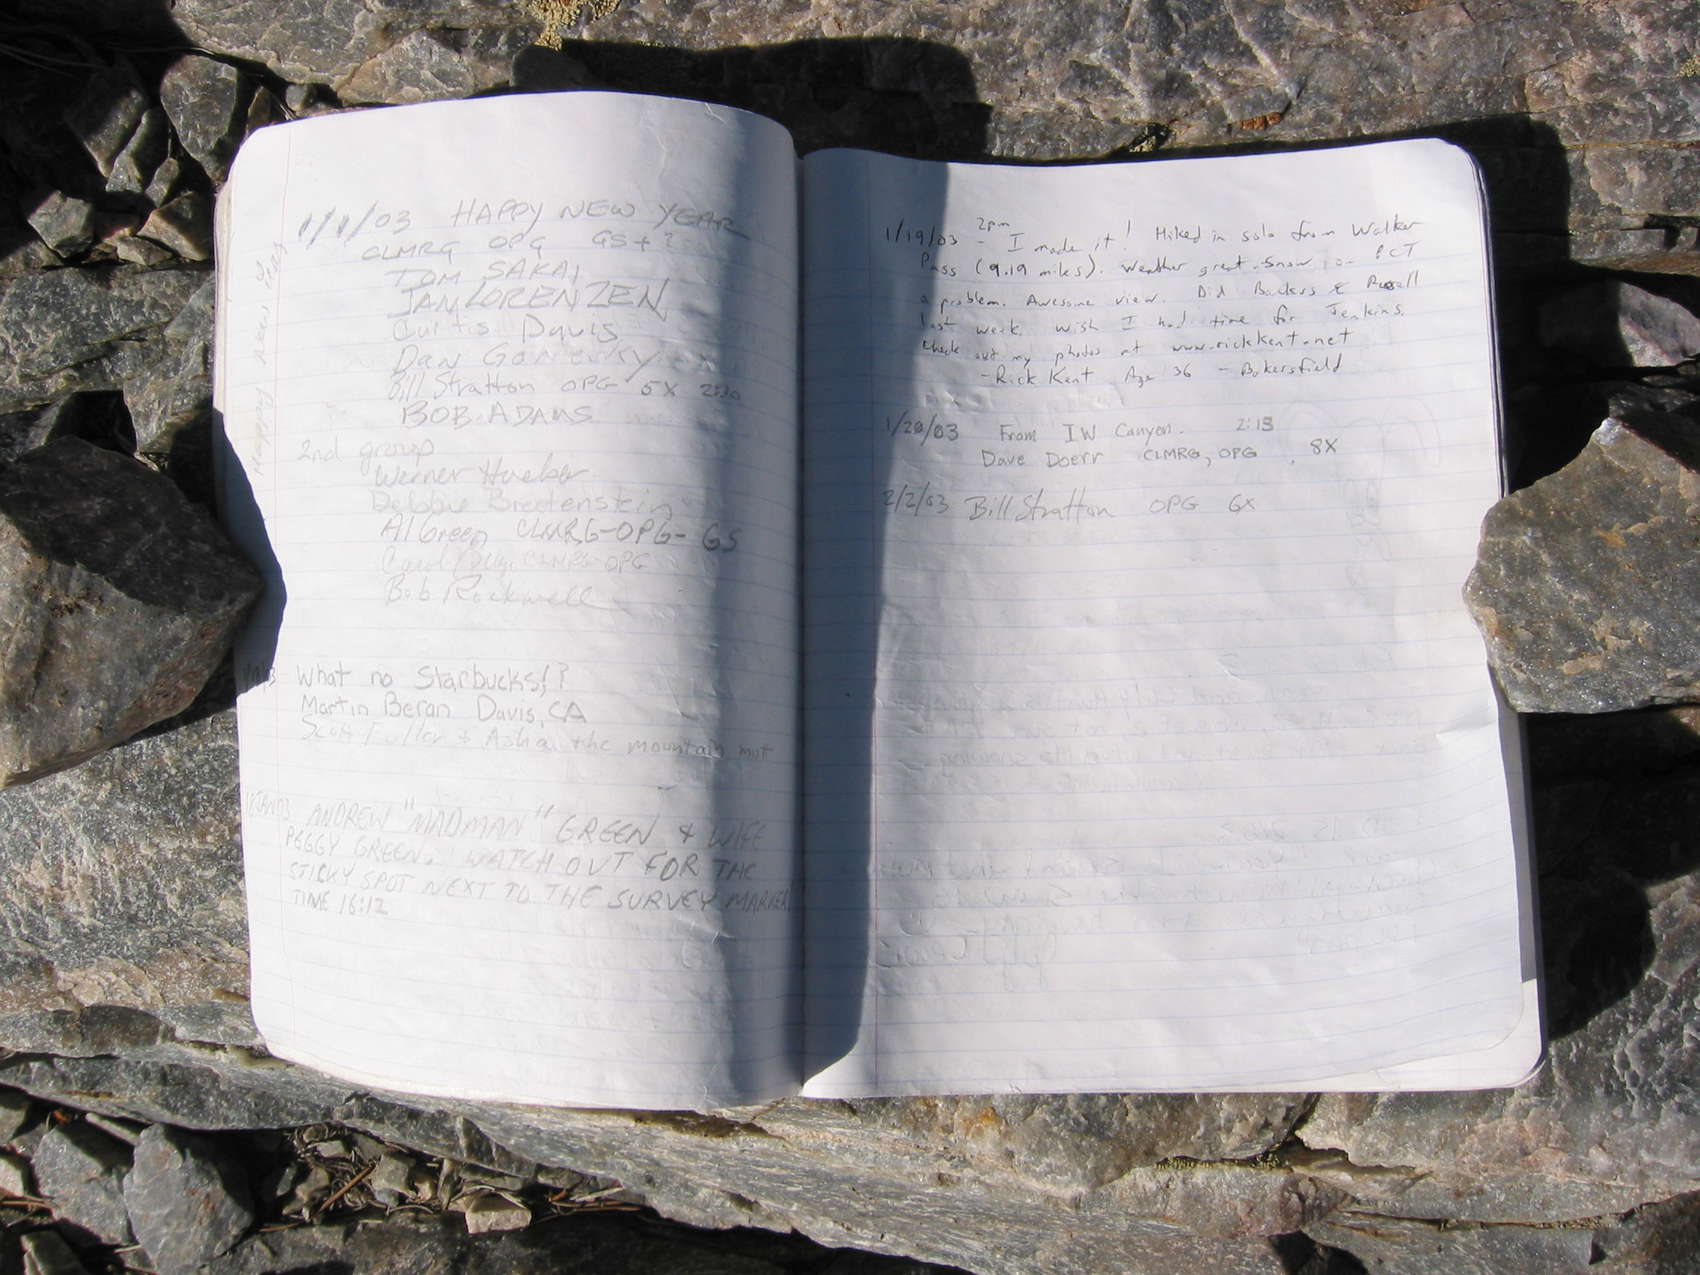 1/1/03 HAPPY NEW YEAR
CLMRG OPG GS + ?
TOM SAKAI
JAN LORENZEN
Curtis Davis
Dan
Bill Stratton OPG 5X 2:30
BOB ADAMS
2nd group
Werner Hueber
Debbie Breitenstein
Al Green CLMRG-OPG-GS
CLMRG-OPG
Bob Rockwell
What no Starbucks!?
Martin Beran Davis, CA
Scott Fuller + Asha the mountain mut
ANDREW "MADMAN" GREEN & WIFE
PEGGY GREEN. WATCH OUT FOR THE
STICKY SPOT NEXT TO THE SURVEY MARKER.
TIME 16:12
Happy New Year
2pm
1/19/03 - I made it! Hiked in solo from Walker
Pass (9.19 miles). Weather great. Snow on PCT
a problem. Awesome view. Did Backus & Russell
last week. Wish I had time for Jenkins.
Check out my photos at www.rickkent.net
- Rick Kent Age 36 - Bakersfield
1/20/03 From IW Canyon. 2:13
Dave Doerr CLMRG, OPG, 8X
2/2/03 Bill Stratton OPG 6X